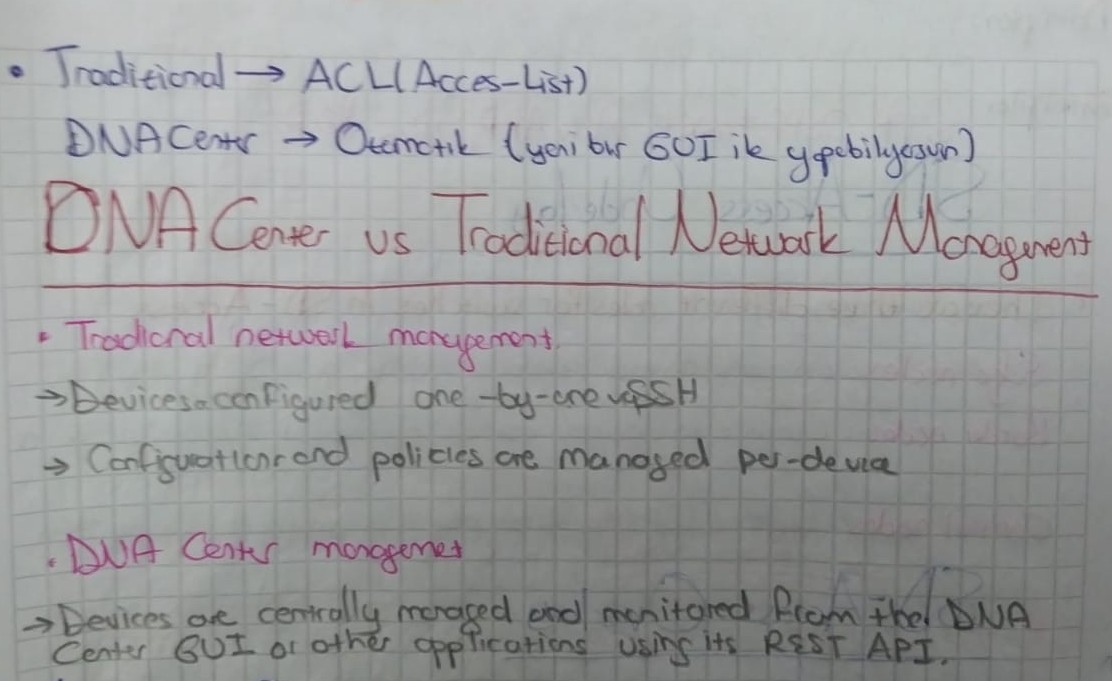 • Traditional → ACL (Acces-List)
DNA Center → Otomatik (yeni bir GUI ile ypabilyosun)
DNA Center vs Traditional Network Management
• Tradional network management.
→ Devices configured one-by-one via SSH
→ Configuration and policies are managed per-device
• DNA Center managemet
→ Devices are centrally managed and monitored from the DNA
Center GUI or other applications using its REST API.